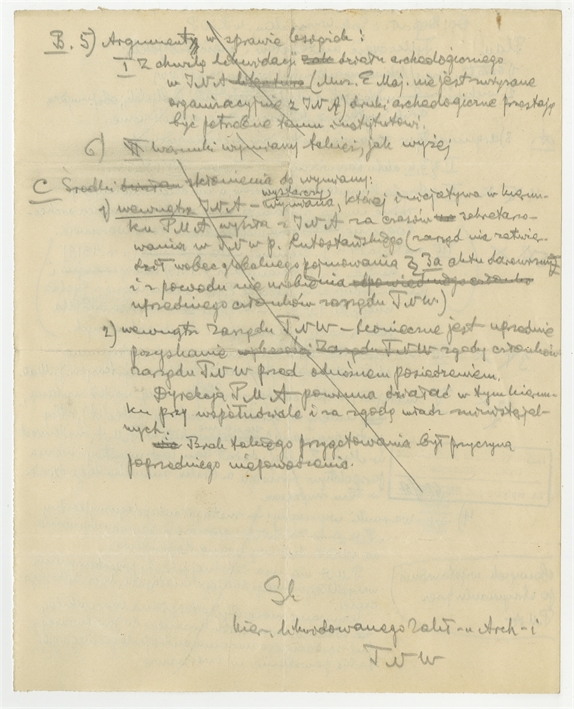 B. 5) Argumenty w sprawie książek:
I Z chwilą likwidacji działu archeologicznego
w TNW (Muz. E. Maj. nie jest związane
organizacyjnie z TNW) druki archeologiczne przestają
być potrzebne temu instytutowi.
6) II Warunki wymiany takież, jak wyżej
C Środki skłonienia do wymiany:
1) wewnątrz TNW – wystarczy wymiana, której inicjatywa w kierun-
ku PMA wyszła z TNW za czasów sekretarzo-
wania w TNW p. Lutosłańskiego (zarząd nie zatwier-
dził wobec globalnego pojmowania § 3a aktu darowizny
i z powodu nie urobienia
uprzedniego członków zarządu TNW)
2) wewnątrz Zarządu TNW – konieczne jest uprzednie
pozyskanie zgody członków
zarządu TNW przed odnośnem posiedzeniem.
Dyrekcja PMA powinna działać w tym kierun-
ku przy współudziale i za zgodą władz
nych.
Brak takiego przygotowania był przyczyną
poprzedniego niepowodzenia.
kier. likwidowanego Zakł-u Arch-i
TNW